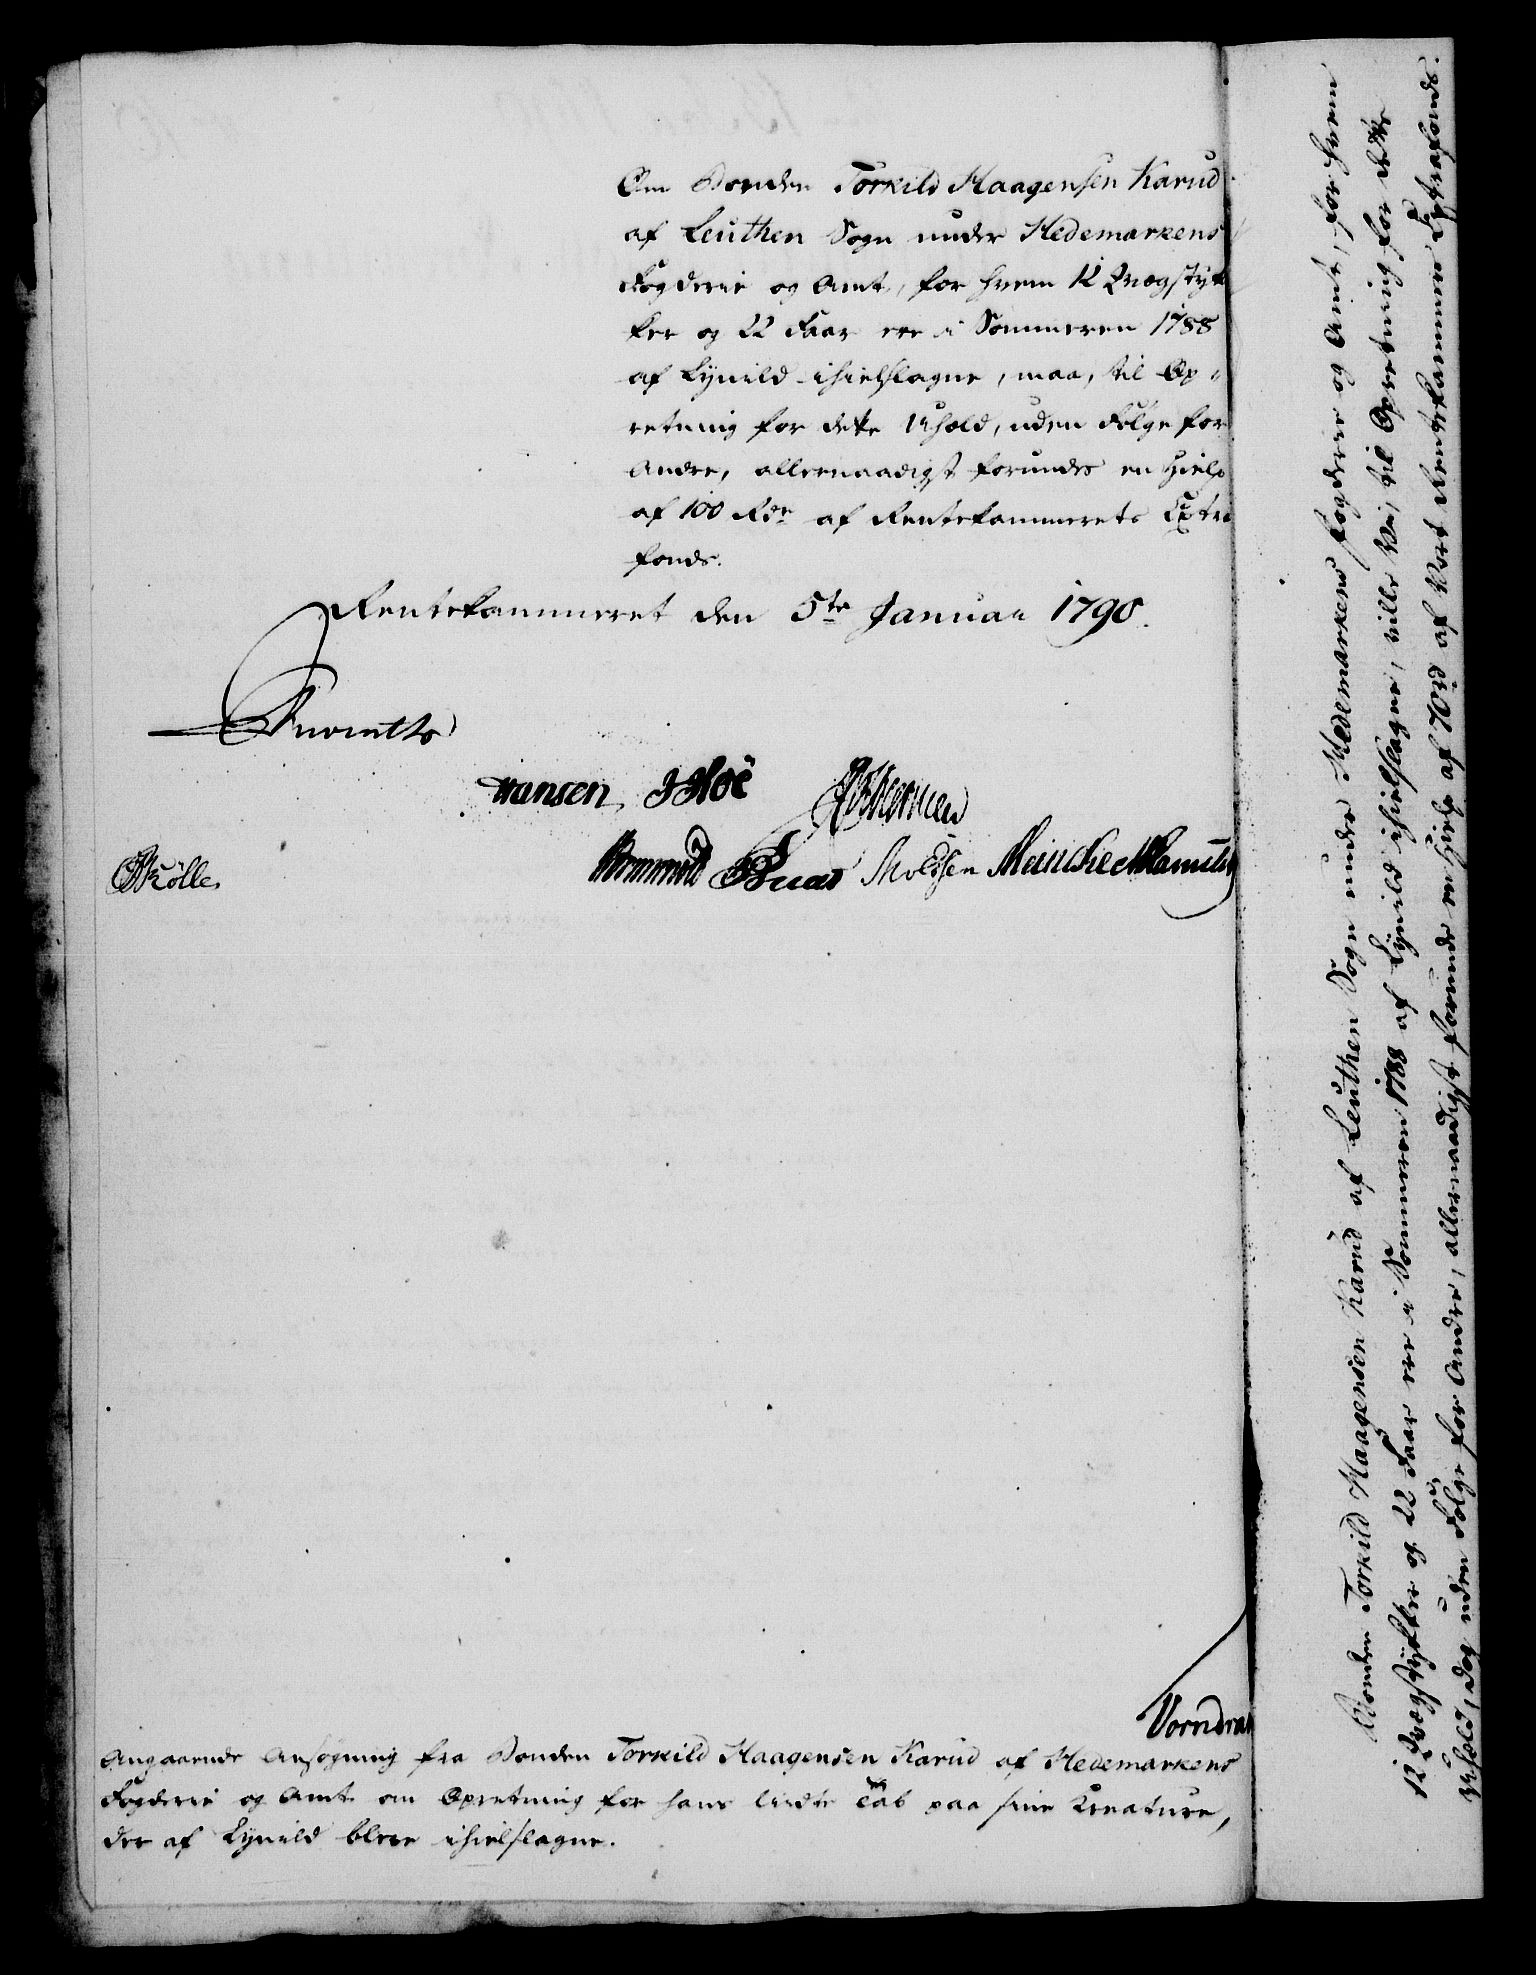 Om Bonden Torkild Haagensen Karud
af Leuthen Sogn under Hedemarkens
Fogderie og Amt, for hvem 12 Qvægstyk
ker og 22 Faar ere i Sommeren 1788
af Lynild ihielslagne, maa, til Op-
retning for dette Uheld, uden Følge for
Andre, allernaadigst forundes en Hielp
af 100 Rdr af Rentekammerets Extra
fonds.
Rentekammeret den 5te Januar 1790.
Hansen
Rølle
Meincke
Vorndran
Angaaende Ansøgning fra Bonden Torkild Haagensen Karud af Hedemarkens
Fogderie og Amt om Opretning for hans lidte Tab paa sine Creature,
der af Lynild bleve ihielslagne.
Bonden Torkild Haagensen Karud af Leuthen Sogn under Hedemarkens Fogderie og Amt, for hvem
12 Qvægstykker og 22 Faar ere i Sommeren 1788 af Lynild ihielslagne, ville Vi, til Opretning for dette
Uheld, dog uden Følge for Andre, allernaadigst forunde en Hielp af 70 rd af Vort Rentekammers Extrafonds.